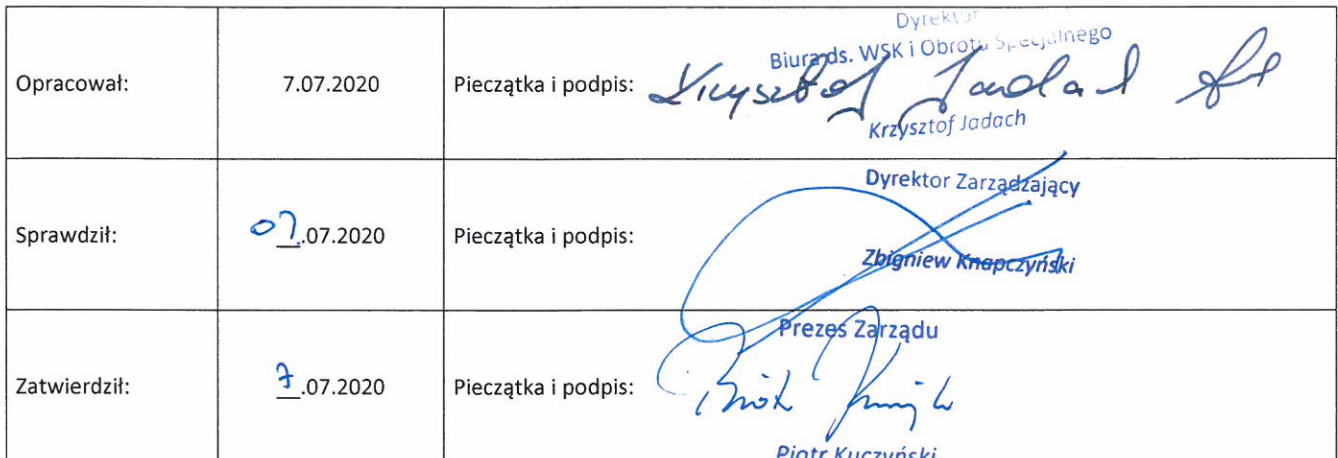 Opracował: 7.07.2020 Pieczątka i podpis:
Dyrektor
Biura ds. WSK i Obrotu Specjalnego
Krzysztof Jadach
Krzysztof Jadach
Sprawdził: 07.07.2020 Pieczątka i podpis:
Dyrektor Zarządzający
Zbigniew Knapczyński
Zatwierdził: 7.07.2020 Pieczątka i podpis:
Prezes Zarządu
Piotr Kuczyński